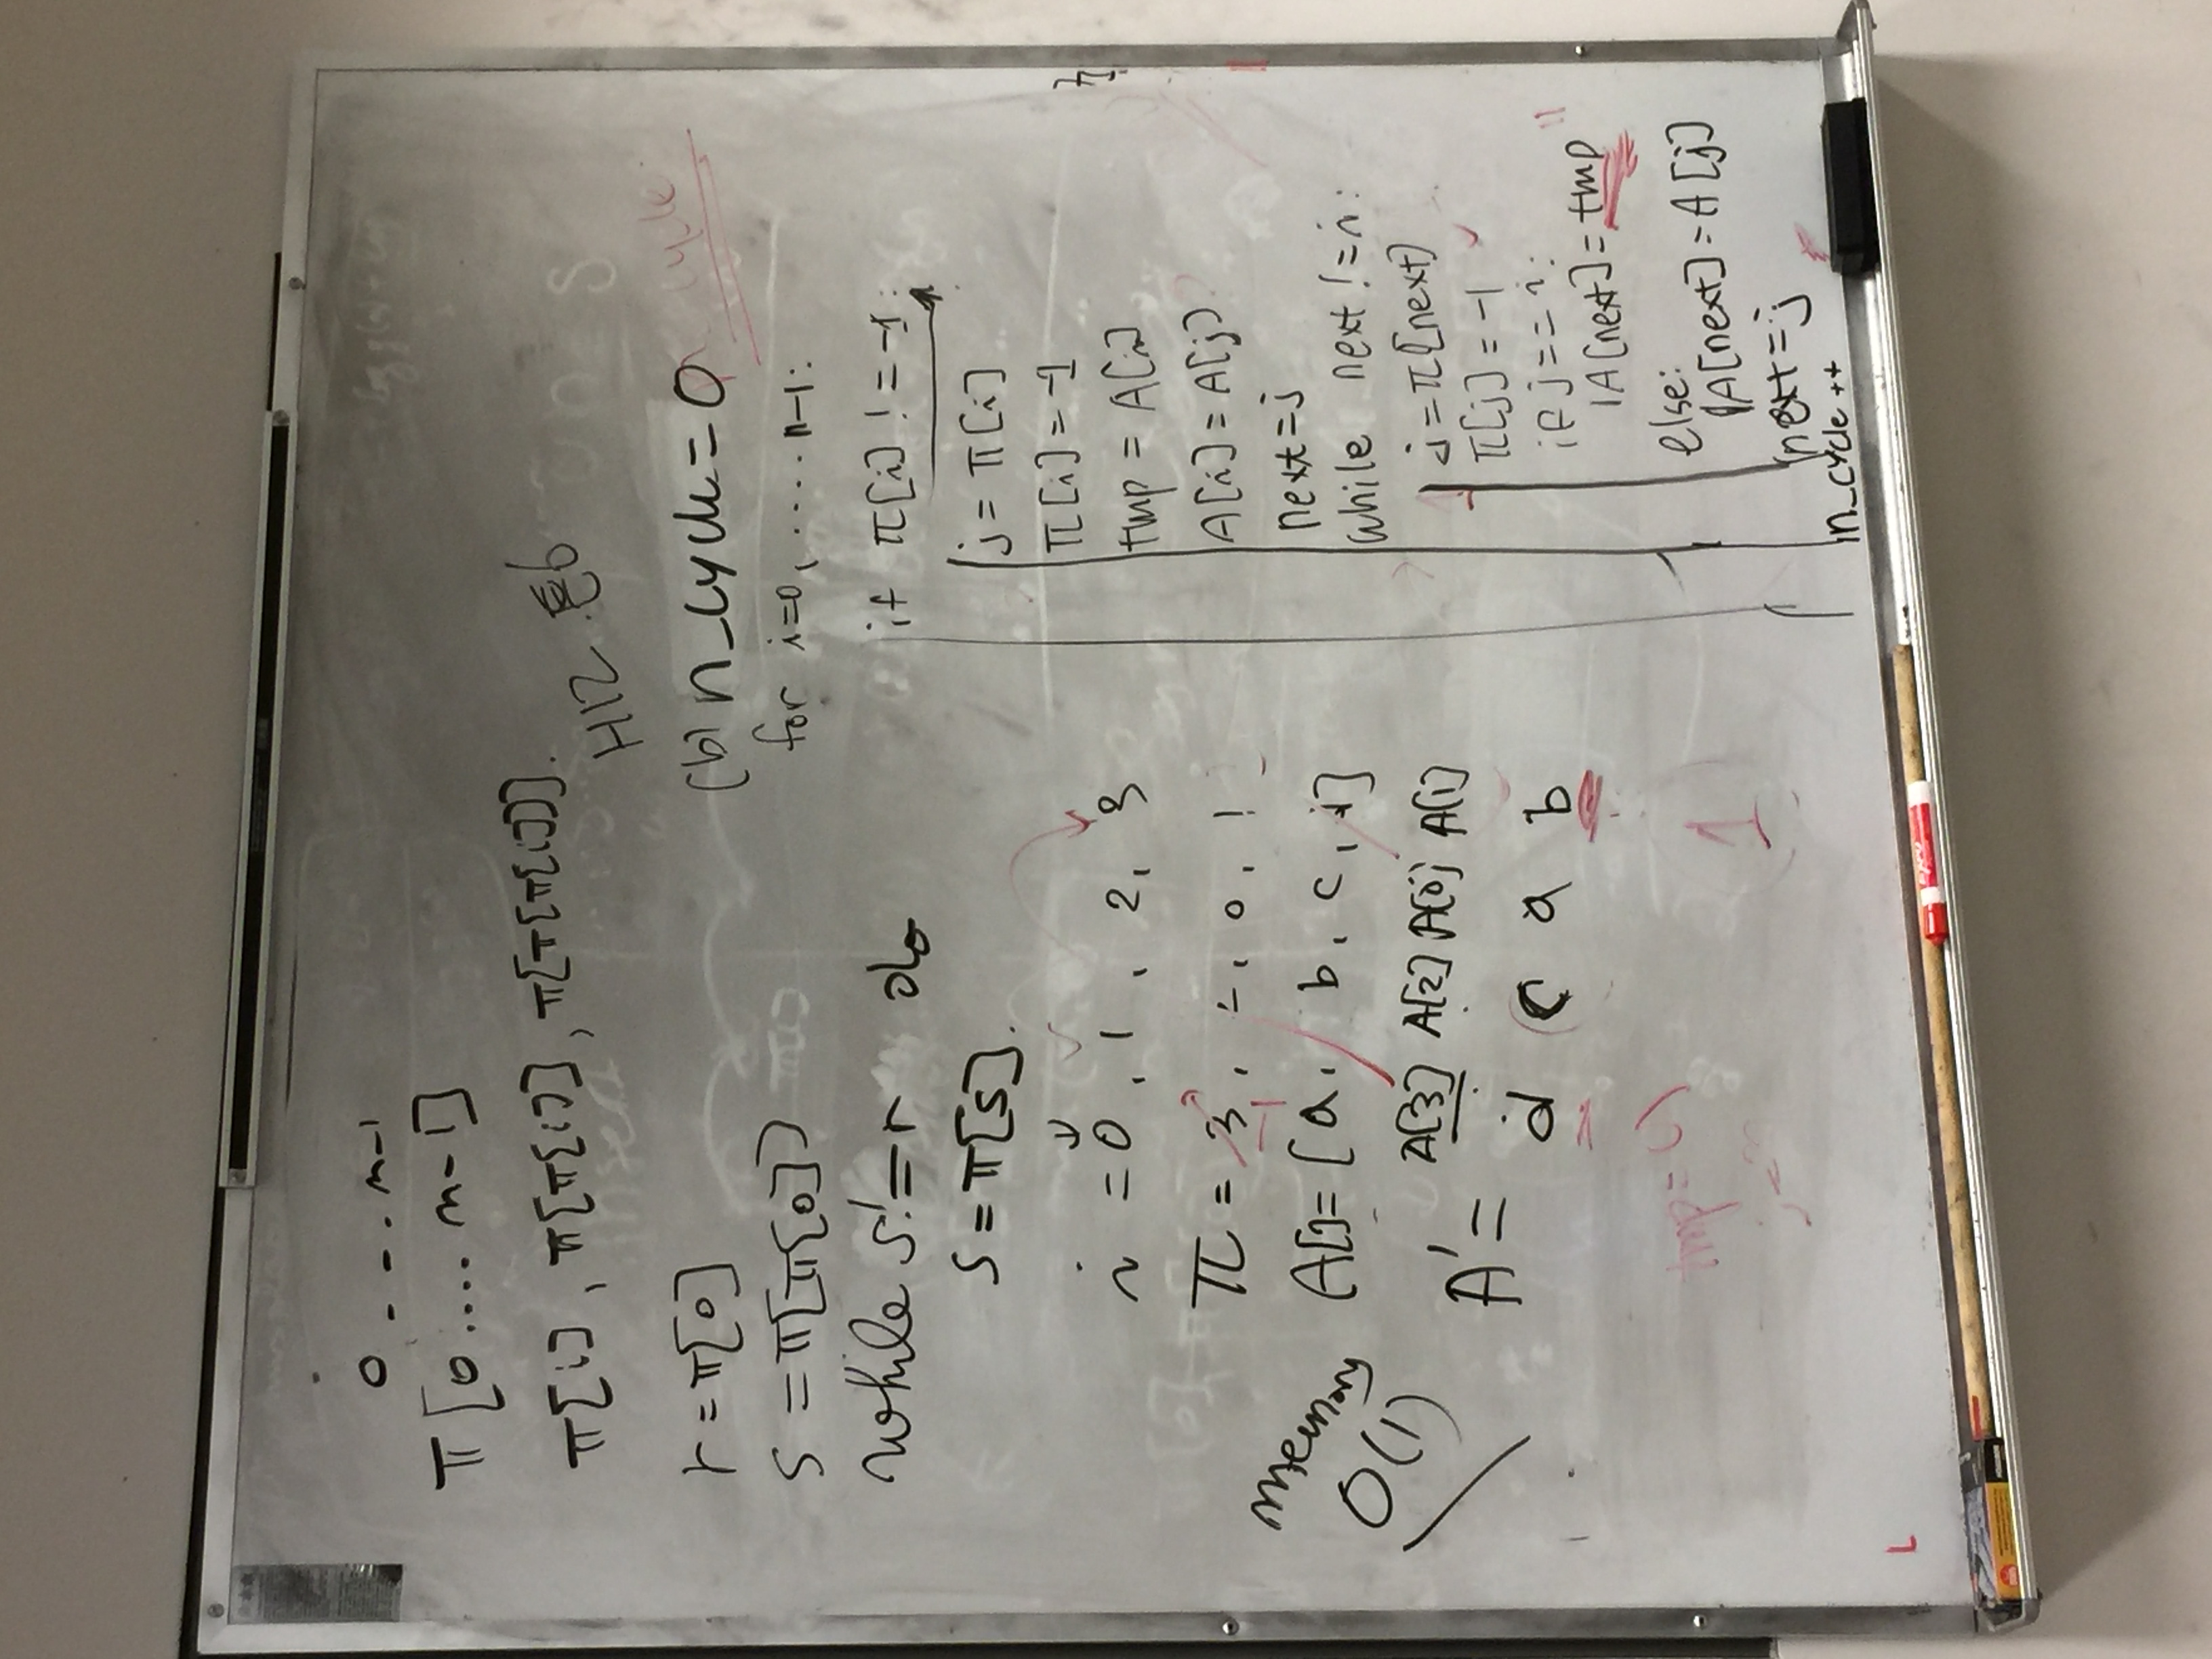 0 . - - . n-1
π[0 .... n-1]
π[i], π[π[i]], π[π[π[i]]].
r = π[0]
s = π[π[0]]
while s != r do
s = π[s].
i = 0, 1, 2, 3
π = 3, 2, 0, 1
-1
A[]= [a, b, c, d]
memory
O(1)
A[3] A[2] A[0] A[1]
A' =
d c a b
tmp = a
1
L
H12. E6
n s
insert
(b) n_cycle = 0
cycle
for i=0, .... n-1:
if π[i] != -1:
j = π[i]
π[i] = -1
tmp = A[i]
A[i] = A[j]
next = j
while next != i:
j = π[next]
π[j] = -1
if j == i:
A[next] = tmp
else:
A[next] = A[j]
next = j
n_cycle ++